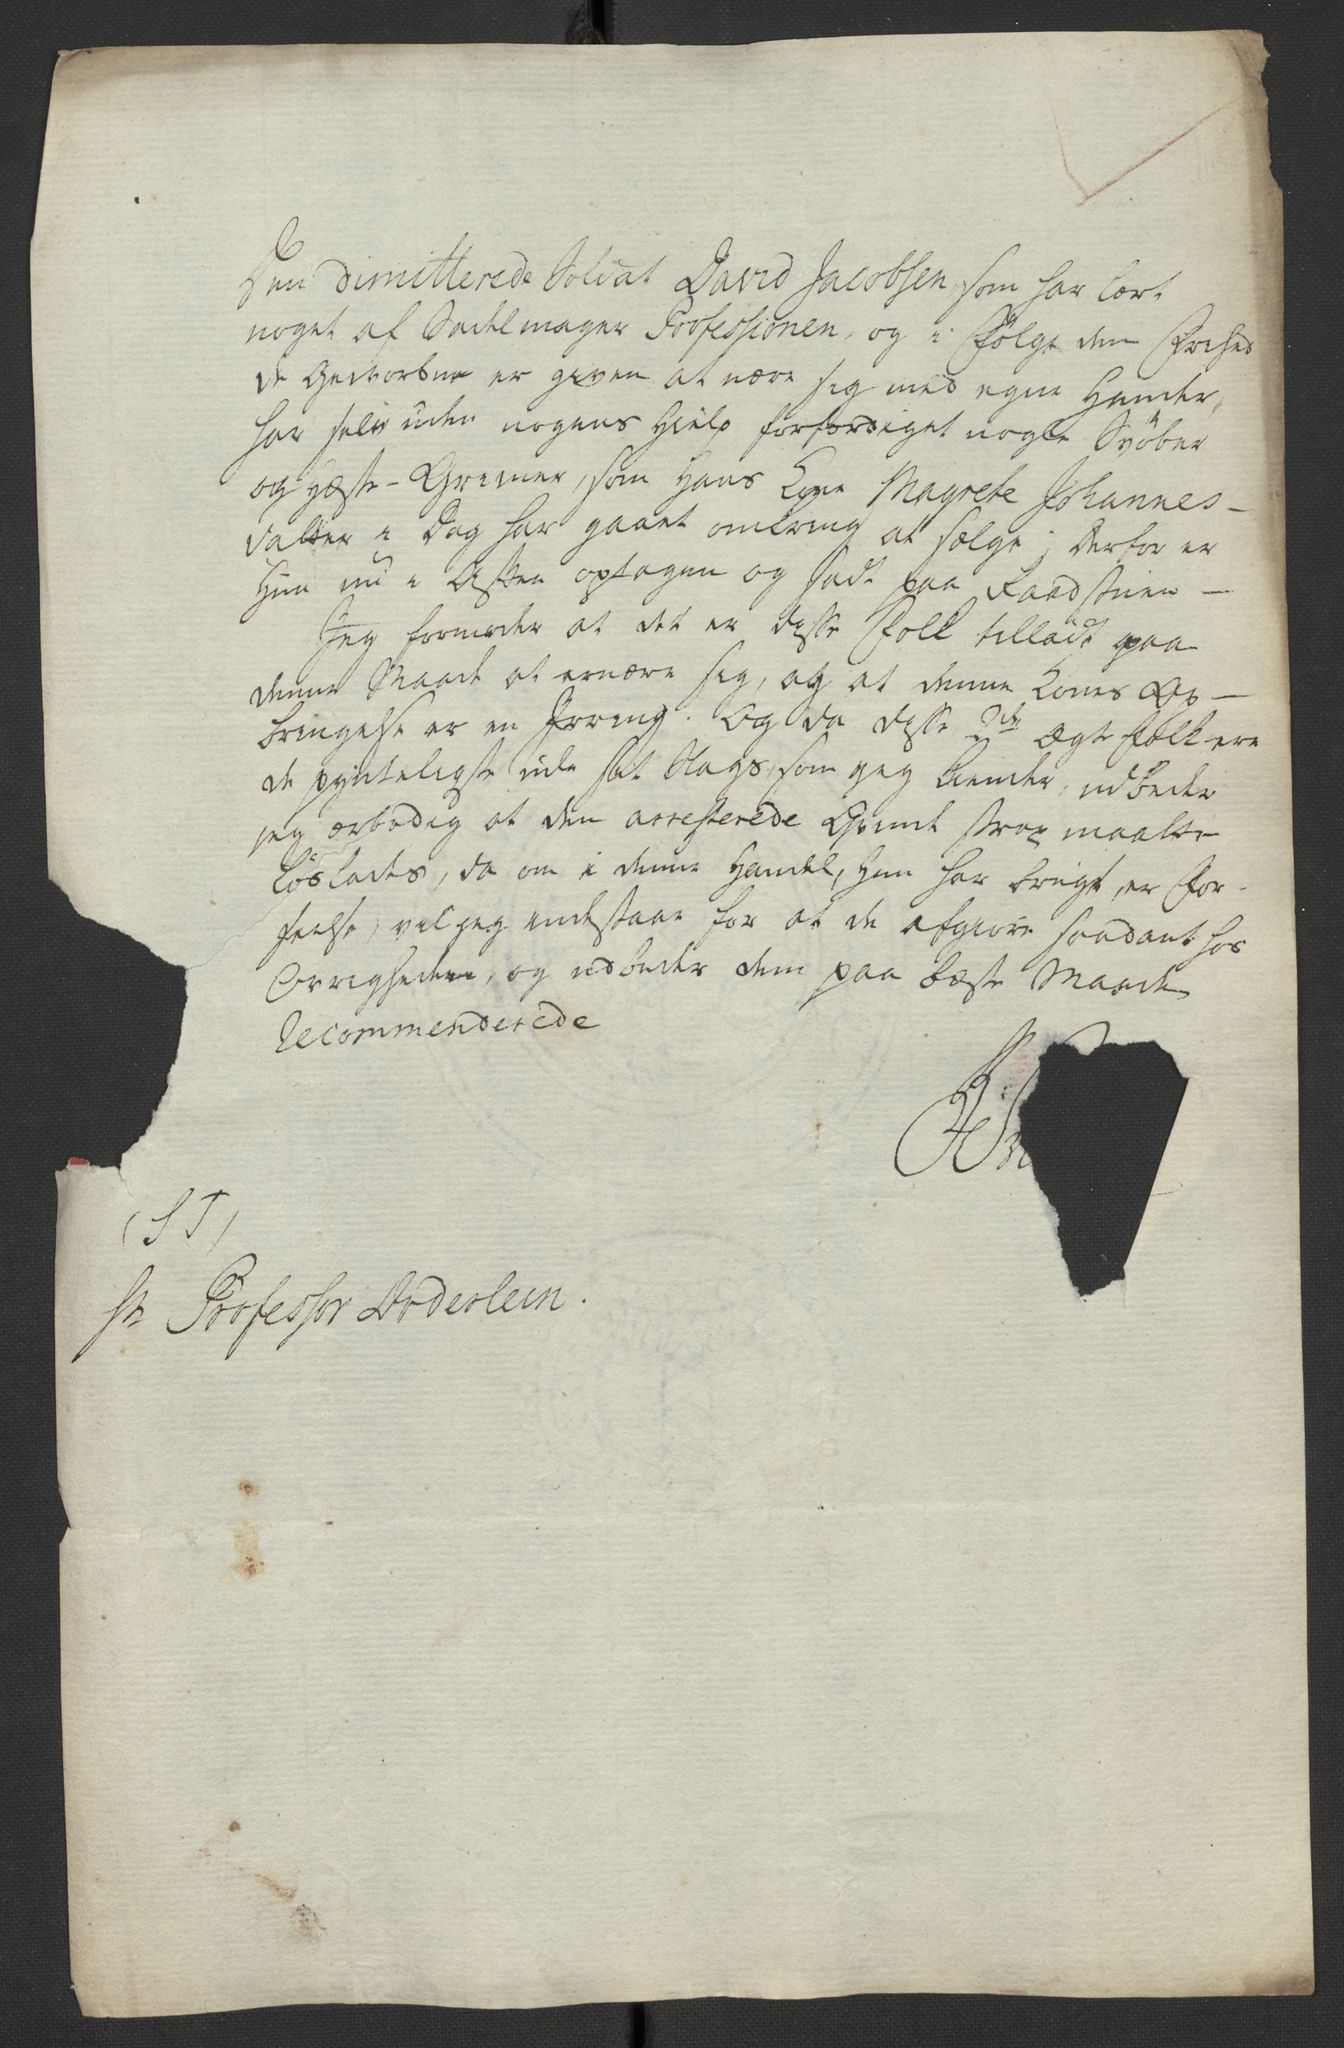 Den dimitterede Soldat David Jacobsen, som har lært
noget af Sadelmager Professionen, og i Følge den Friehed
de Gevorbne er given at nære sig med egne Hænder,
har selv uden nogens Hielp forfærdiget nogle Svøber
og Heste-Grimer, som Hans Kone Magrete Johannes-
datter i Dag har gaaet omkring at sælge; Derfor er
Hun nu i Aften optagen og sadt paa Raadstuen —
Jeg formoder at det er disse Folk tilladt paa
denne Maade at ernære sig, og at denne Kones Op-
bringelse er en Irring. Og da disse 2de Ægte Folk ere
de skikkeligste af det Slags, som jeg kiender, udbeder
jeg ærbødig at den arresterede Qvinde strax maatte
løslades, da om i denne Handel, Hun har brugt, er For-
seelse, vil jeg indestaae for at de afgiøre saadant hos
Øvrigheden, og udbeder dem paa bæste Maade
Recommenderede
(S T)
Hr Professor Døderlein.